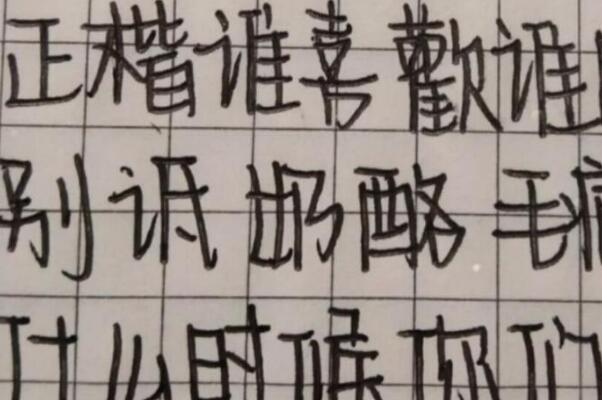 正楷谁喜歡谁
别诋奶酪毛病
什么时候你们